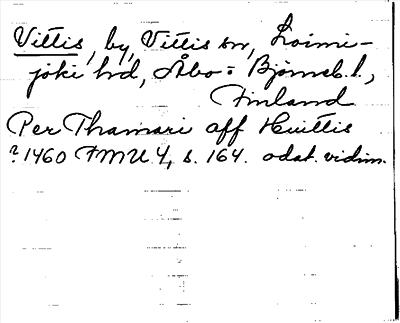 Vittis, by, Vittis sn, Loimi-
joki hd, Åbo-Björneb. l.,
Finland
Per Thamari aff Huittis
? 1460 FMU 4, s. 164. odat. vidim.